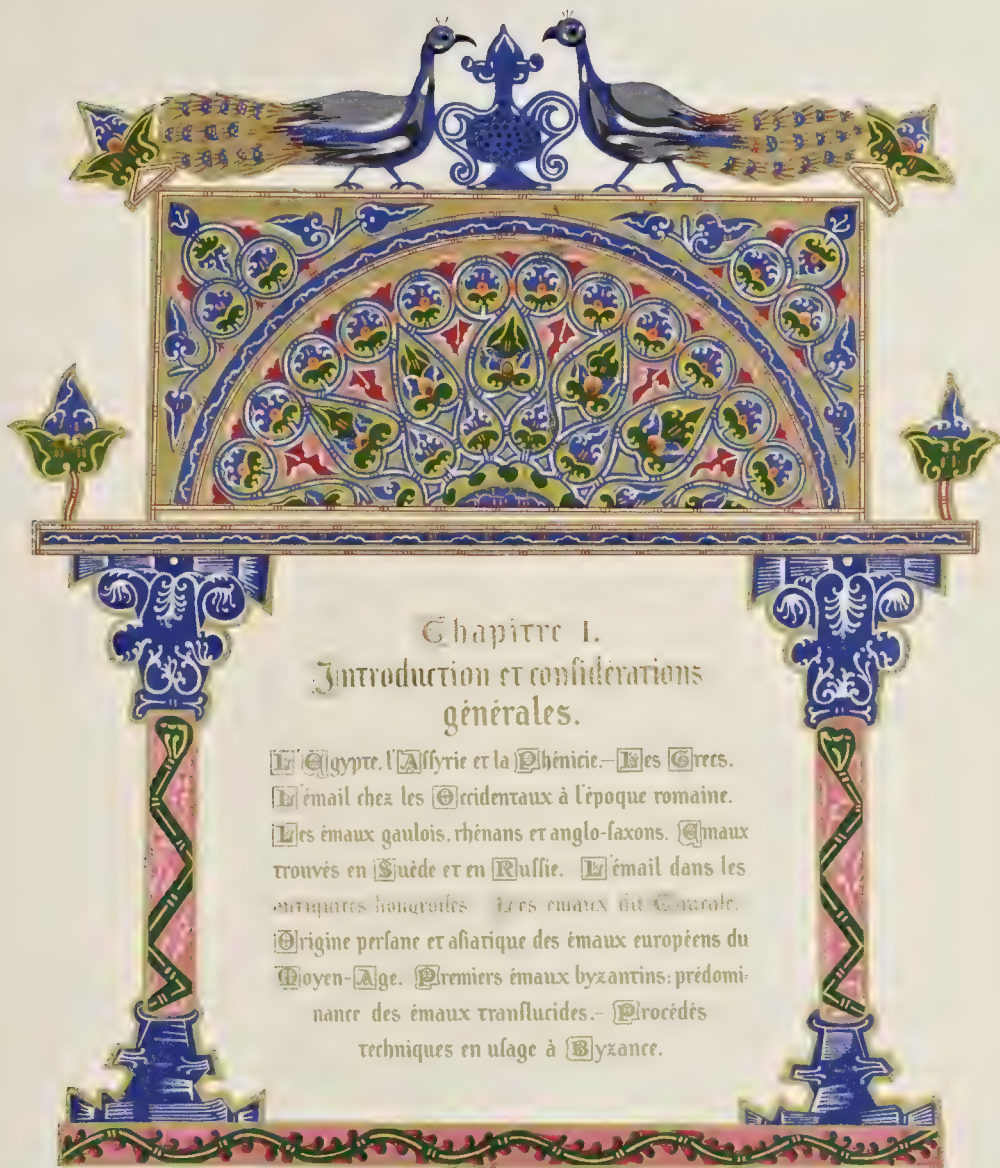 Chapitre I.
Introduction et conſidérations
générales.
L'Egypte, l'Aſſyrie et la Phénicie.– Les Grecs.
L'émail chez les Occidentaux à l'époque romaine.
Les émaux gaulois, rhénans et anglo-ſaxons. Emaux
trouvés en Suède et en Ruſſie. L'émail dans les
antiquités hongroiſes Les émaux du Caucaſe.
Origine perſane et aſiatique des émaux européens du
Moyen-Age. Premiers émaux byzantins: prédomi=
nance des émaux tranſlucides.– Procédés
techniques en uſage à Byzance.